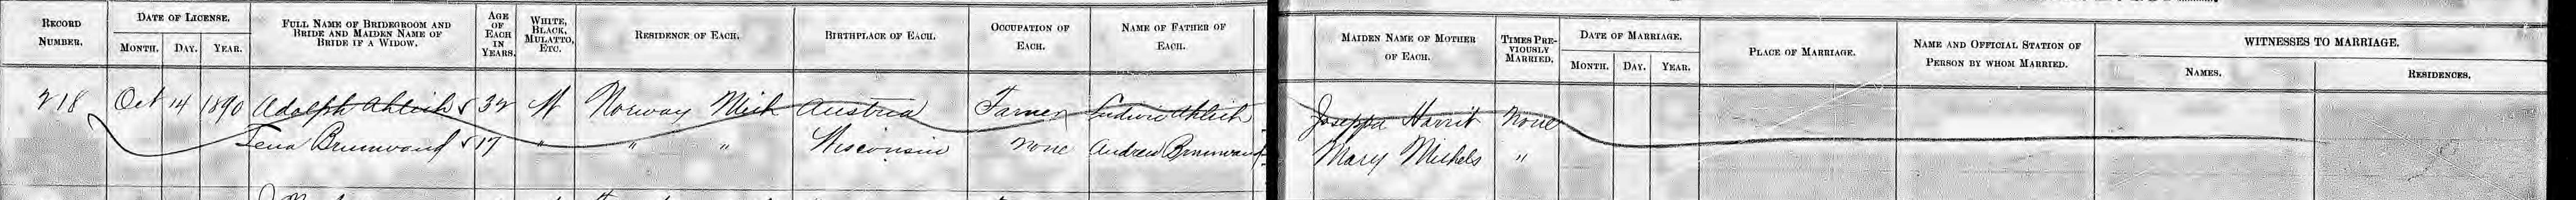 RECORD NUMBER.
DATE OF LICENSE.
MONTH. DAY. YEAR.
FULL NAME OF BRIDEGROOM AND BRIDE AND MAIDEN NAME OF BRIDE IF A WIDOW.
AGE OF EACH IN YEARS.
WHITE, BLACK, MULATTO, ETC.
RESIDENCE OF EACH.
BIRTHPLACE OF EACH.
OCCUPATION OF EACH.
NAME OF FATHER OF EACH.
MAIDEN NAME OF MOTHER OF EACH.
TIMES PREVIOUSLY MARRIED.
DATE OF MARRIAGE.
MONTH. DAY. YEAR.
PLACE OF MARRIAGE.
NAME AND OFFICIAL STATION OF PERSON BY WHOM MARRIED.
WITNESSES TO MARRIAGE.
NAMES. RESIDENCES.
218 Oct 14 1890 Adolph 32 W Norway Mich Austria Farmer Ludwic Ahlich Joseppa Harrit None
Tena Brunwand 17 " " " Wisconsin None Andrew Brunwand Mary Michels "